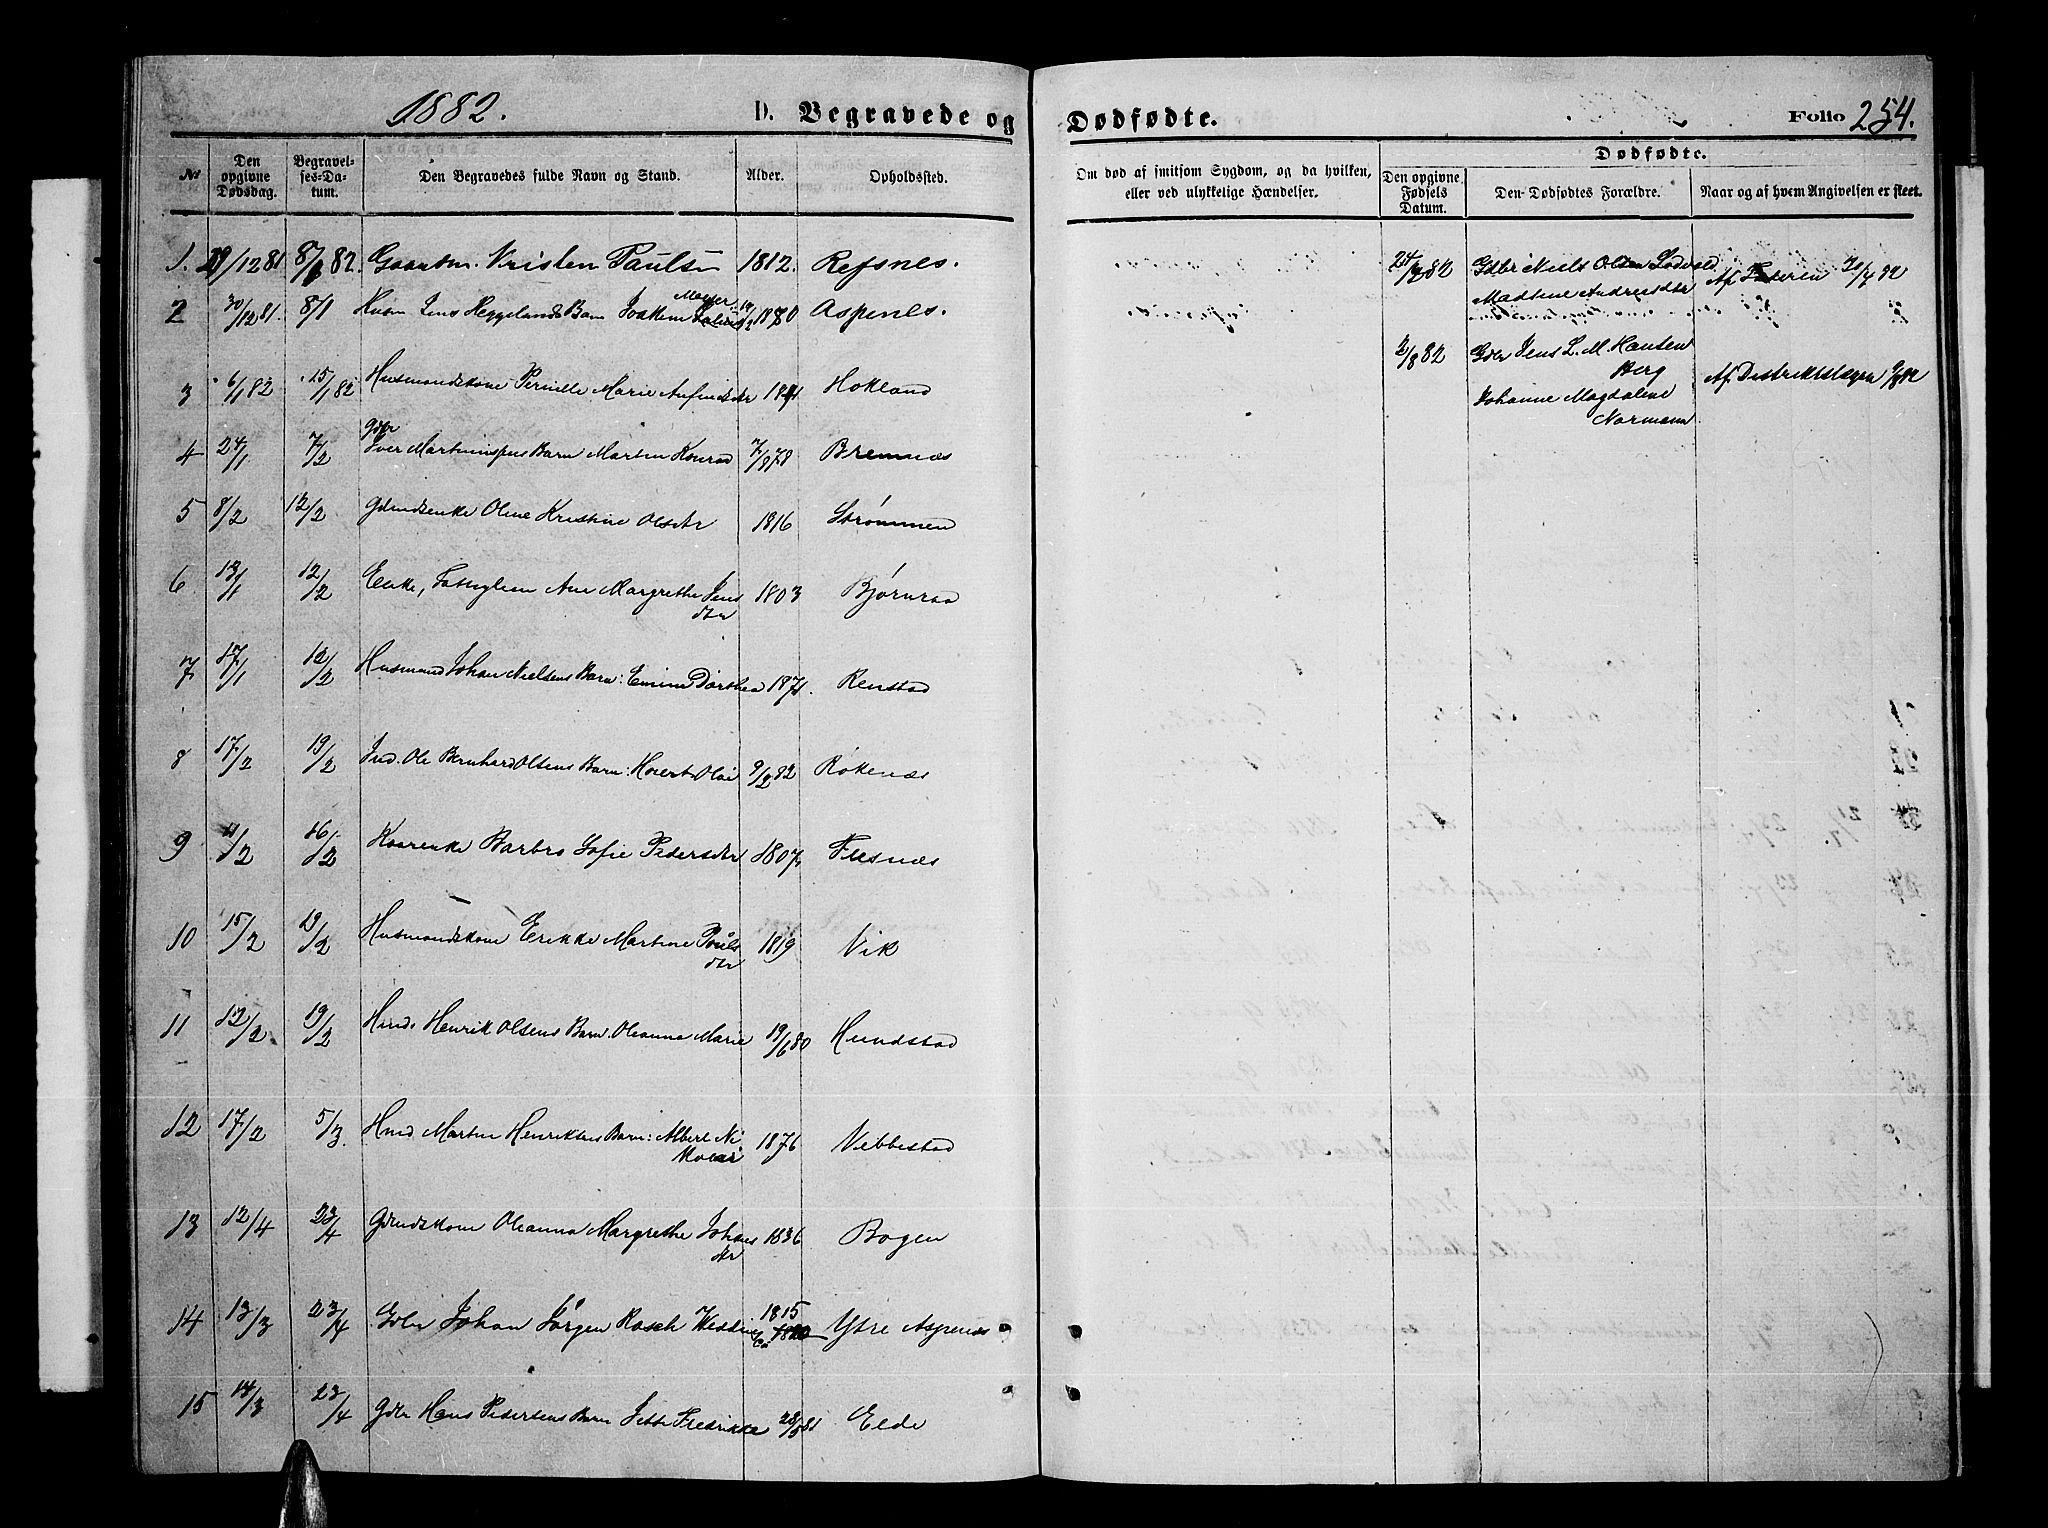 1882.
D. Begravede og Dødfødte.
Folio 254.
№
Den opgivne Dødsdag.
Begravelses-Datum.
Den Begravedes fulde Navn og Stand.
Alder.
Opholdssted.
Om død af smitsom Sygdom, og da hvilken, eller ved ulykkelige Hændelser.
Dødfødte.
Den opgivne Fødsels Datum.
Den Dødfødtes Forældre.
Naar og af hvem Angivelsen er skeet.
1. 29/12 81 8/1 82. Gaardm. Kristen Paulsen 1812. Refsnes.
2 30/12 81. 8/1 Jens Heggelands Barn Joakim Meyer 1880 Aspenes.
3 6/1 82 15/1 82 Husmandskone Pernille Marie 18 Hokland
4 24/1 7/2 Gdbr Iver Martinussens Barn Martin Konrad 7/8 78 Bremnæs
5 8/2 12/2 Gdmdsenke Oline Kristine Olsdtr 1816 Strømmen
6 13/1 12/2 Enke, Fattiglem Ane Margrethe Jens
dtr 1803 Bjørnraa
7 17/1 12/2 Husmand Johan Nielsens Barn: Emine Dorthea 1871. Renstad
8 17/2 19/2 Ind. Ole Bernhard Olsens Barn: 9/2 82 Røkenæs
9 11/2 16/2 Kaarenke Barbro Sofie Pedersdtr 1807. Fusnæs
10 15/2 19/2 Husmandskone Erikke Martine Pouls
dtr 1819 Vik
11 12/2 19/2 Henrik Olsens Barn. Oleanna Marie 19/6 80 Hundstad
12 17/2 5/3. Martin Henriksens Barn: Albert Ni
kolai 1876 Vebbestad
13 12/4 23/4 Gdmdskone Oleanna Margrethe Johans
dtr 1836 Bogen
14 13/3 23/4 Gdbr Johan Jørgen Rasch 1815 Ytre Aspenæs
15 14/3 23/4 Gdbr Hans Pedersens Barn Jette Fredrikke 28/5 81 Elde
82 Gdbr Niels Olsen
Madtine Andreasdtr Af Faderen
2/8 82 Gdbr Jens L. M. Hansen
Berg
Johanne Magdalene
Normann Af Distriktslægen